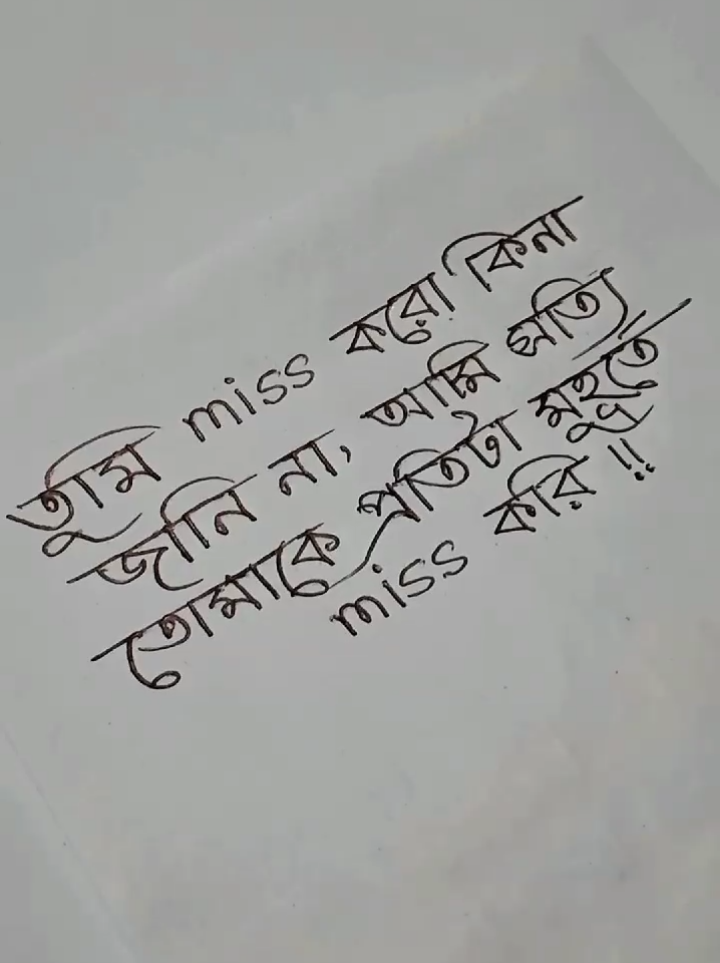 তুমি miss করো কিনা
জানি না, আমি সত্যি
তোমাকে প্রতিটা মুহূর্তে
miss করি !!